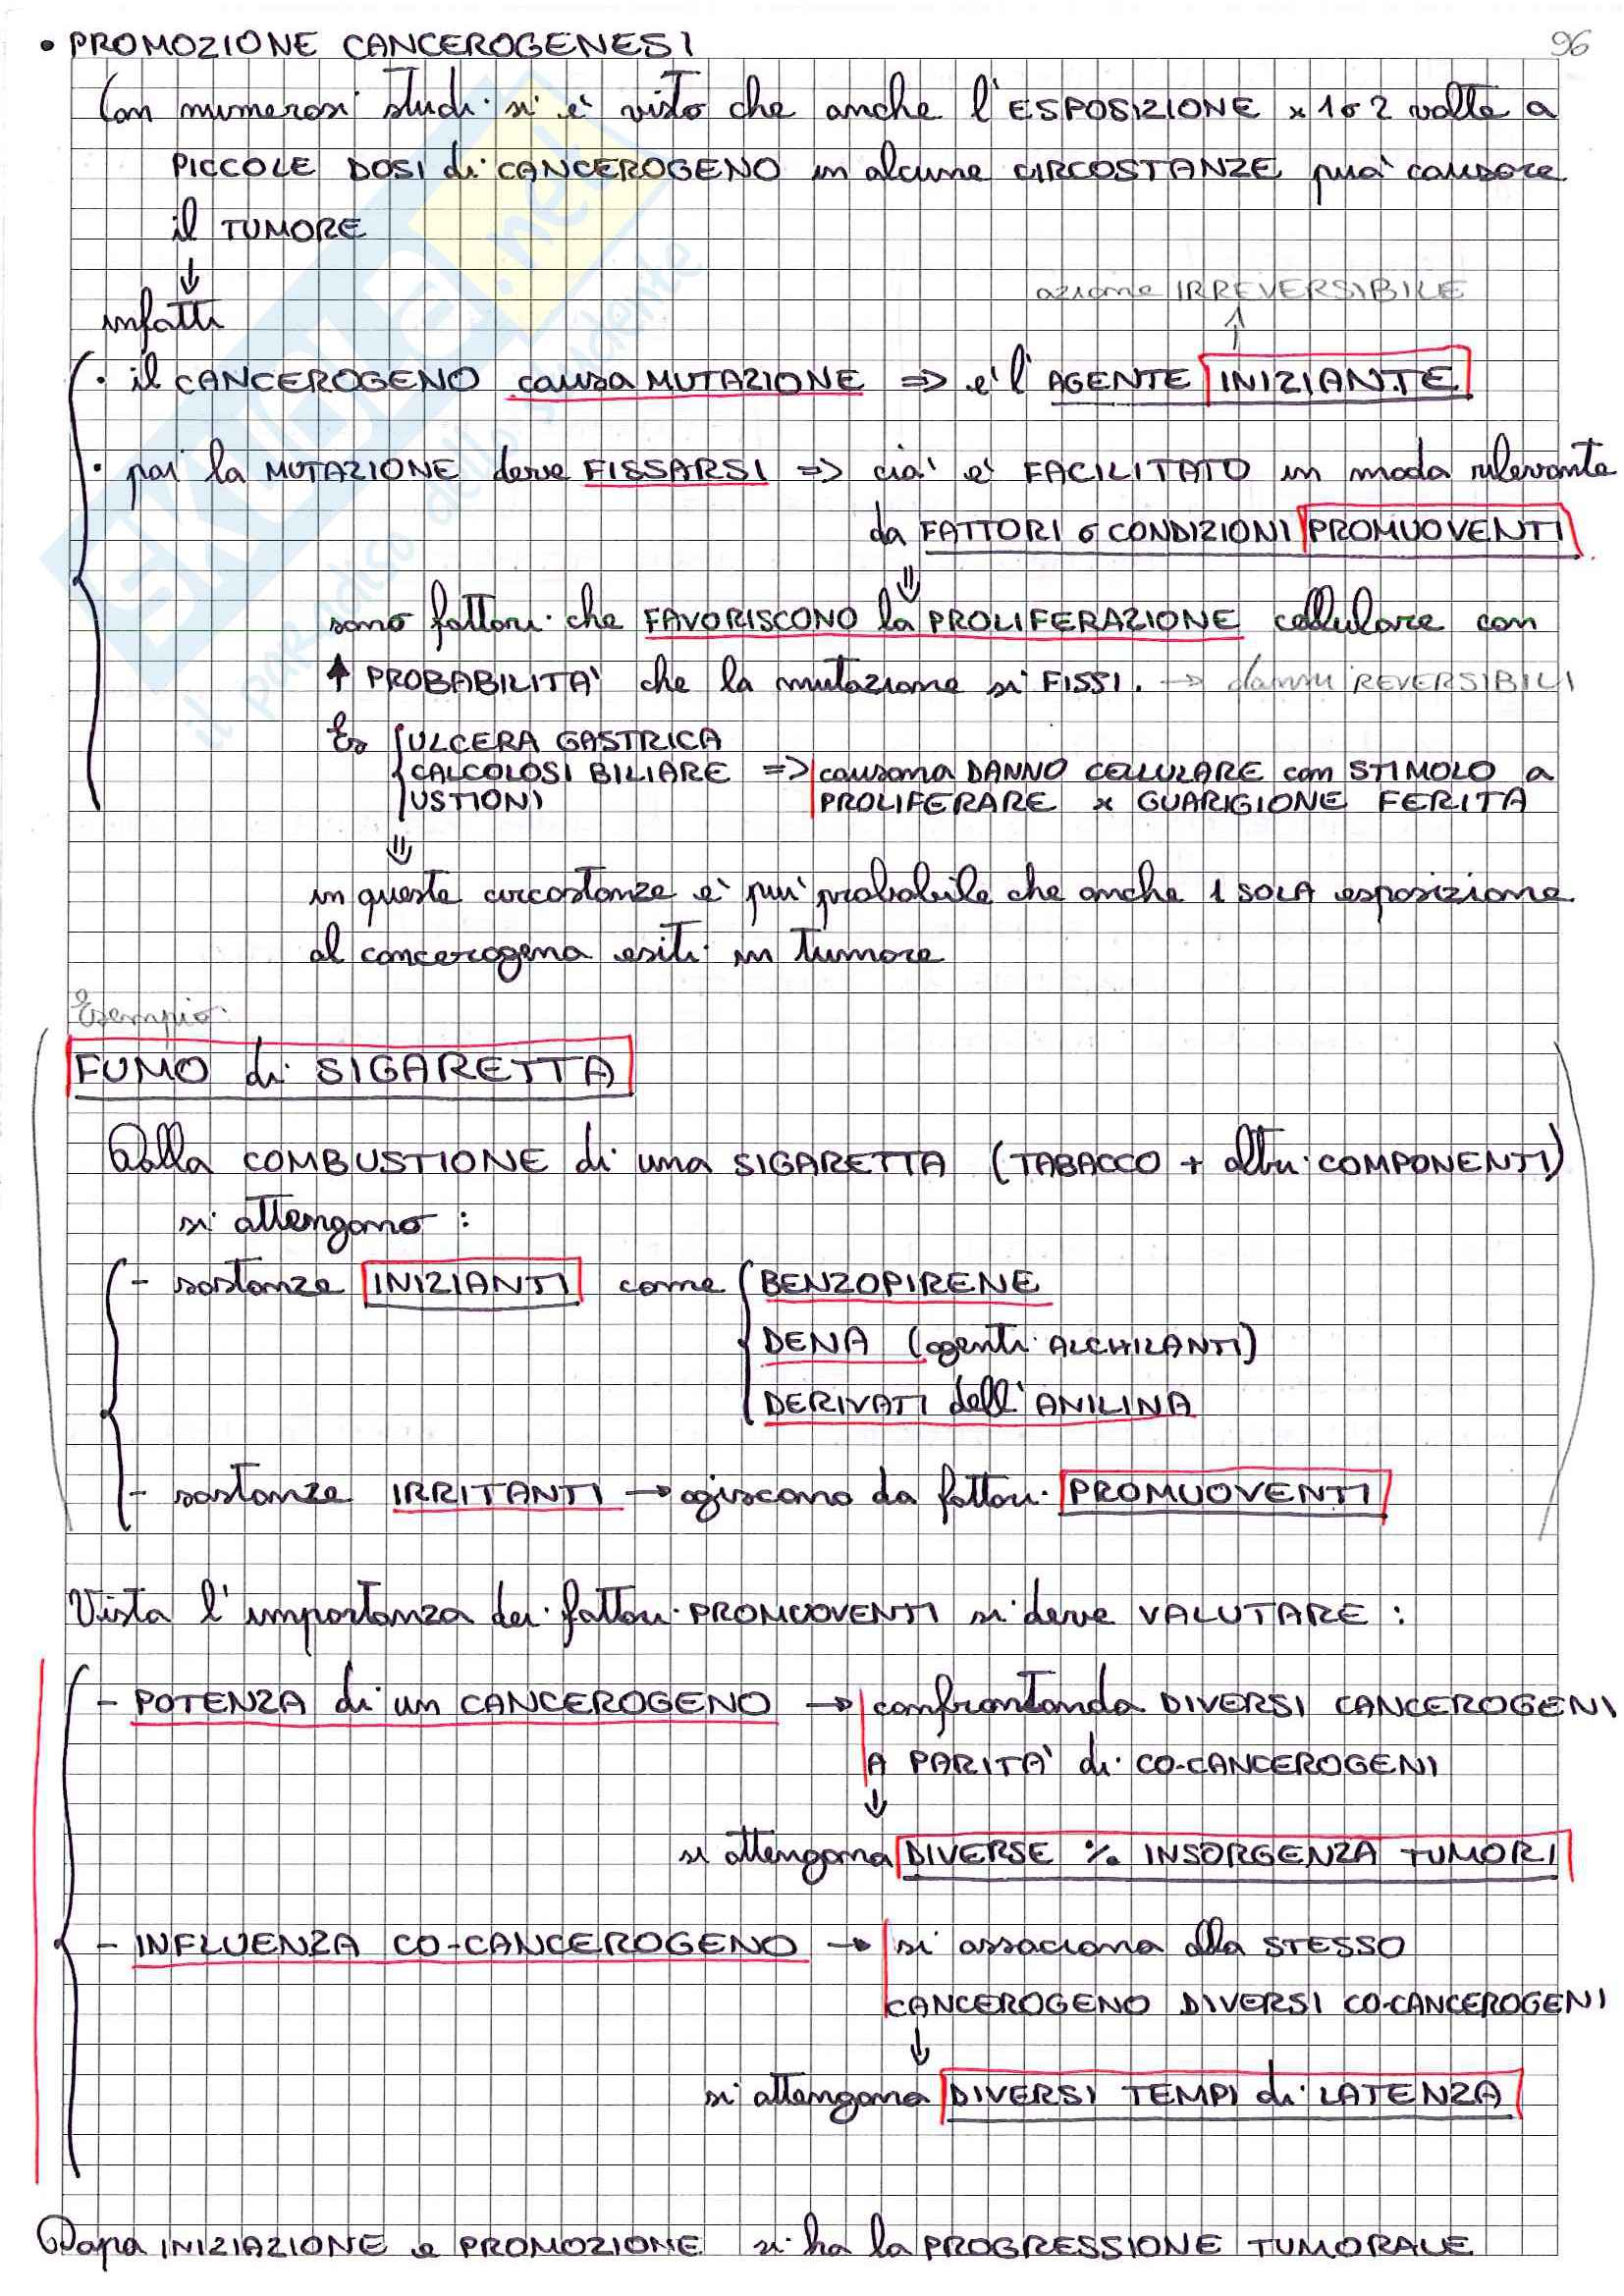 96
• PROMOZIONE CANCEROGENESI
Con numerosi studi si è visto che anche l'ESPOSIZIONE x 1 o 2 volte a
PICCOLE DOSI di CANCEROGENO in alcune CIRCOSTANZE può causare
il TUMORE
↓
infatti
azione IRREVERSIBILE
↑
· il CANCEROGENO causa MUTAZIONE => è l'AGENTE INIZIANTE
· poi la MUTAZIONE deve FISSARSI => ciò è FACILITATO in modo rilevante
da FATTORI o CONDIZIONI PROMUOVENTI
⇓
sono fattori che FAVORISCONO la PROLIFERAZIONE cellulare con
↑ PROBABILITA' che la mutazione si FISSI. → danni REVERSIBILI
Es ULCERA GASTRICA
CALCOLOSI BILIARE => causano DANNO CELLULARE con STIMOLO a
USTIONI PROLIFERARE x GUARIGIONE FERITA
⇓
in queste circostanze è più probabile che anche 1 SOLA esposizione
al cancerogeno esiti in tumore
Esempio
FUMO di SIGARETTA
Dalla COMBUSTIONE di una SIGARETTA (TABACCO + altri COMPONENTI)
si ottengono :
- sostanze INIZIANTI come BENZOPIRENE
DENA (agenti ALCHILANTI)
DERIVATI dell'ANILINA
- sostanze IRRITANTI → agiscono da fattori PROMUOVENTI
Vista l'importanza dei fattori PROMUOVENTI si deve VALUTARE :
- POTENZA di un CANCEROGENO → confrontando DIVERSI CANCEROGENI
A PARITA' di CO-CANCEROGENI
↓
si ottengono DIVERSE % INSORGENZA TUMORI
- INFLUENZA CO-CANCEROGENO → si associano allo STESSO
CANCEROGENO DIVERSI CO-CANCEROGENI
↓
si ottengono DIVERSI TEMPI di LATENZA
Dopo INIZIAZIONE e PROMOZIONE si ha la PROGRESSIONE TUMORALE
SKUOLA.net
il paradiso dello studente